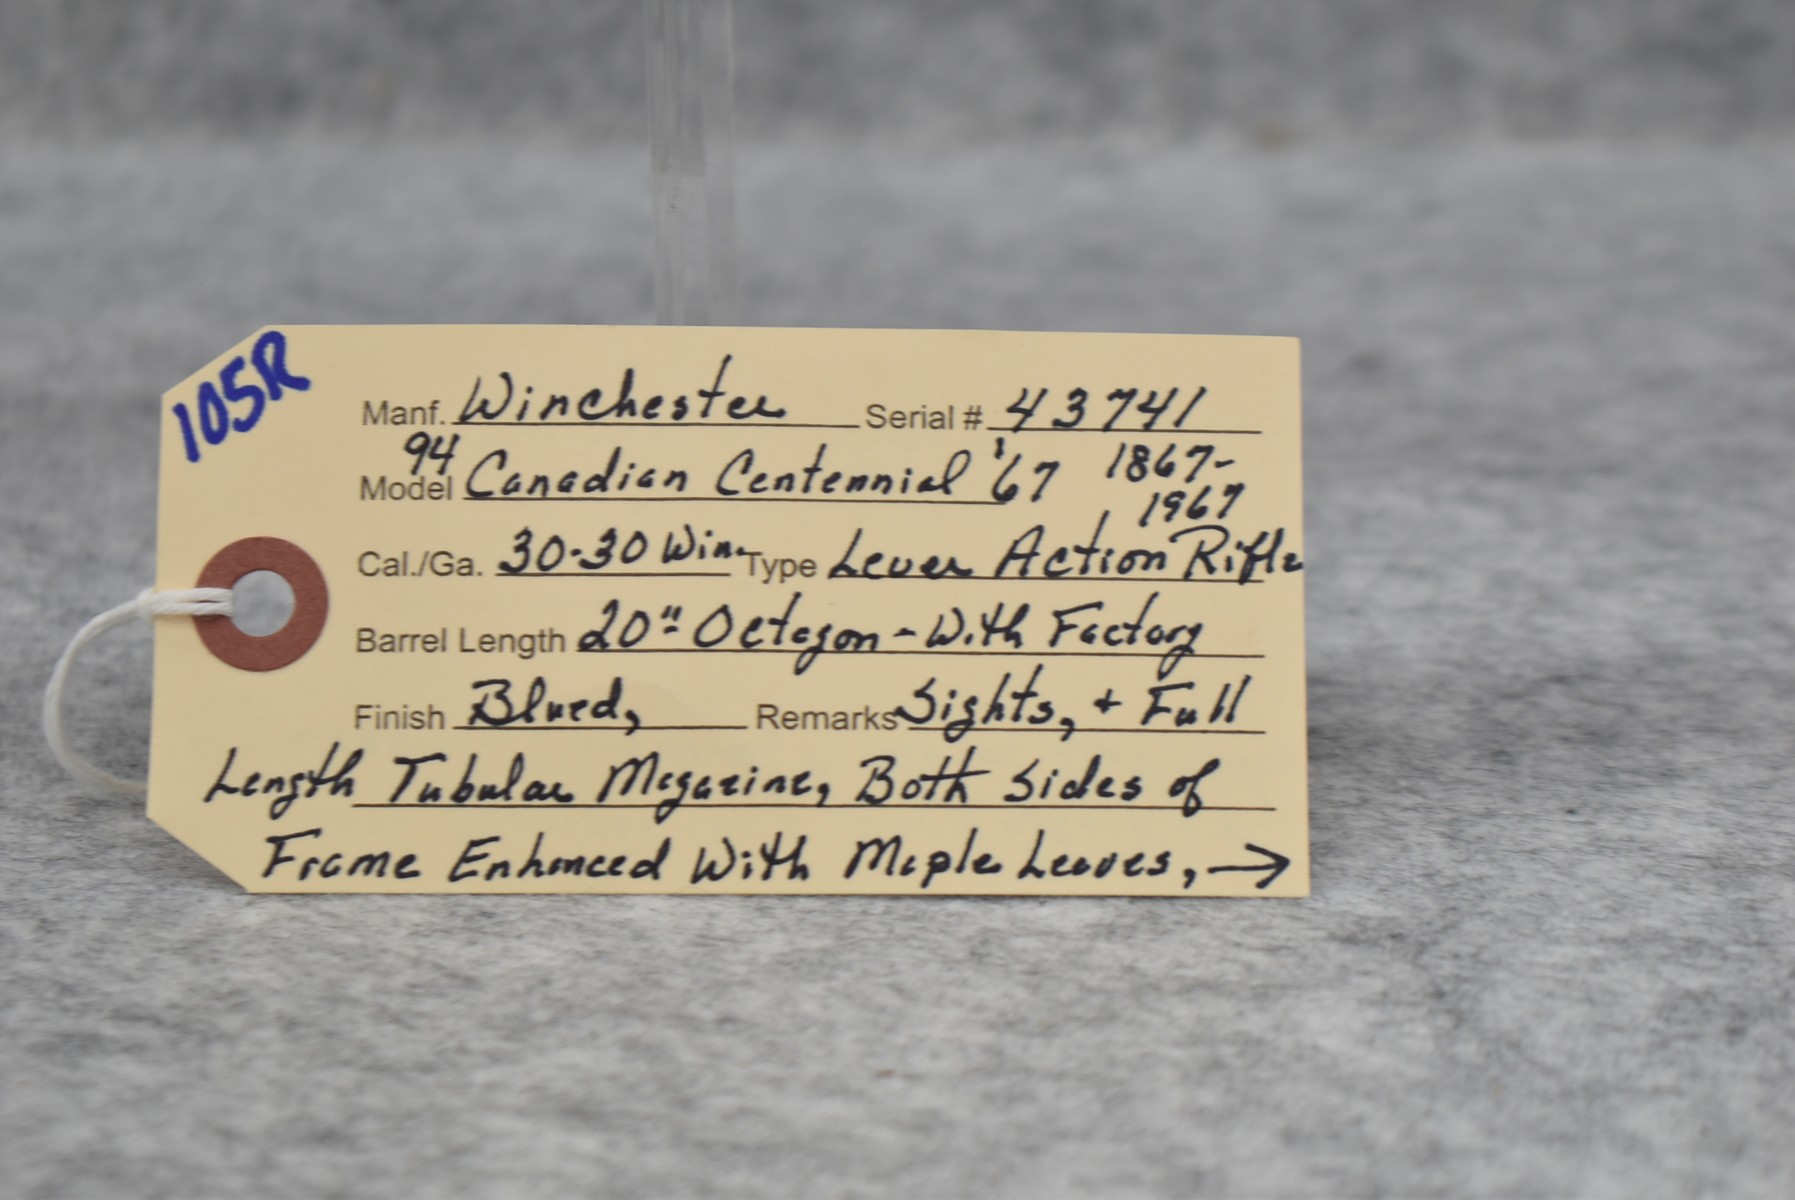 105R
Manf. Winchester Serial # 43741
94
Model Canadian Centennial '67 1867-
1967
Cal./Ga. 30-30 Win. Type Lever Action Rifle
Barrel Length 20" Octagon - With Factory
Finish Blued, Remarks Sights, + Full
Length Tubular Magazine, Both Sides of
Frame Enhanced With Maple Leaves, →